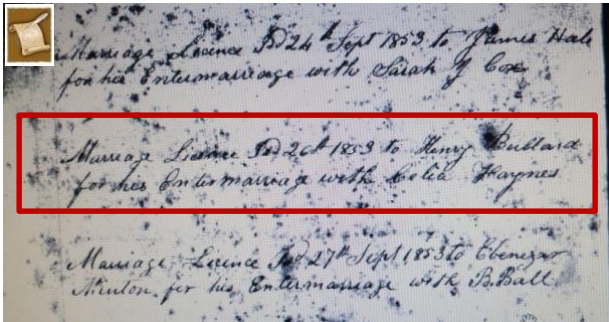 Marriage Licence Isd 24th Sept 1853 to James Hale
for his Entermarriage with Sarah J Cox
Marriage Licence Isd 26th 1853 to Henry Bullard
for his Entermarriage with Celia Haynes
Marriage Licence Isd 27th Sept 1853 to Ebenezar
Minton for his Entermarriage with B. Ball